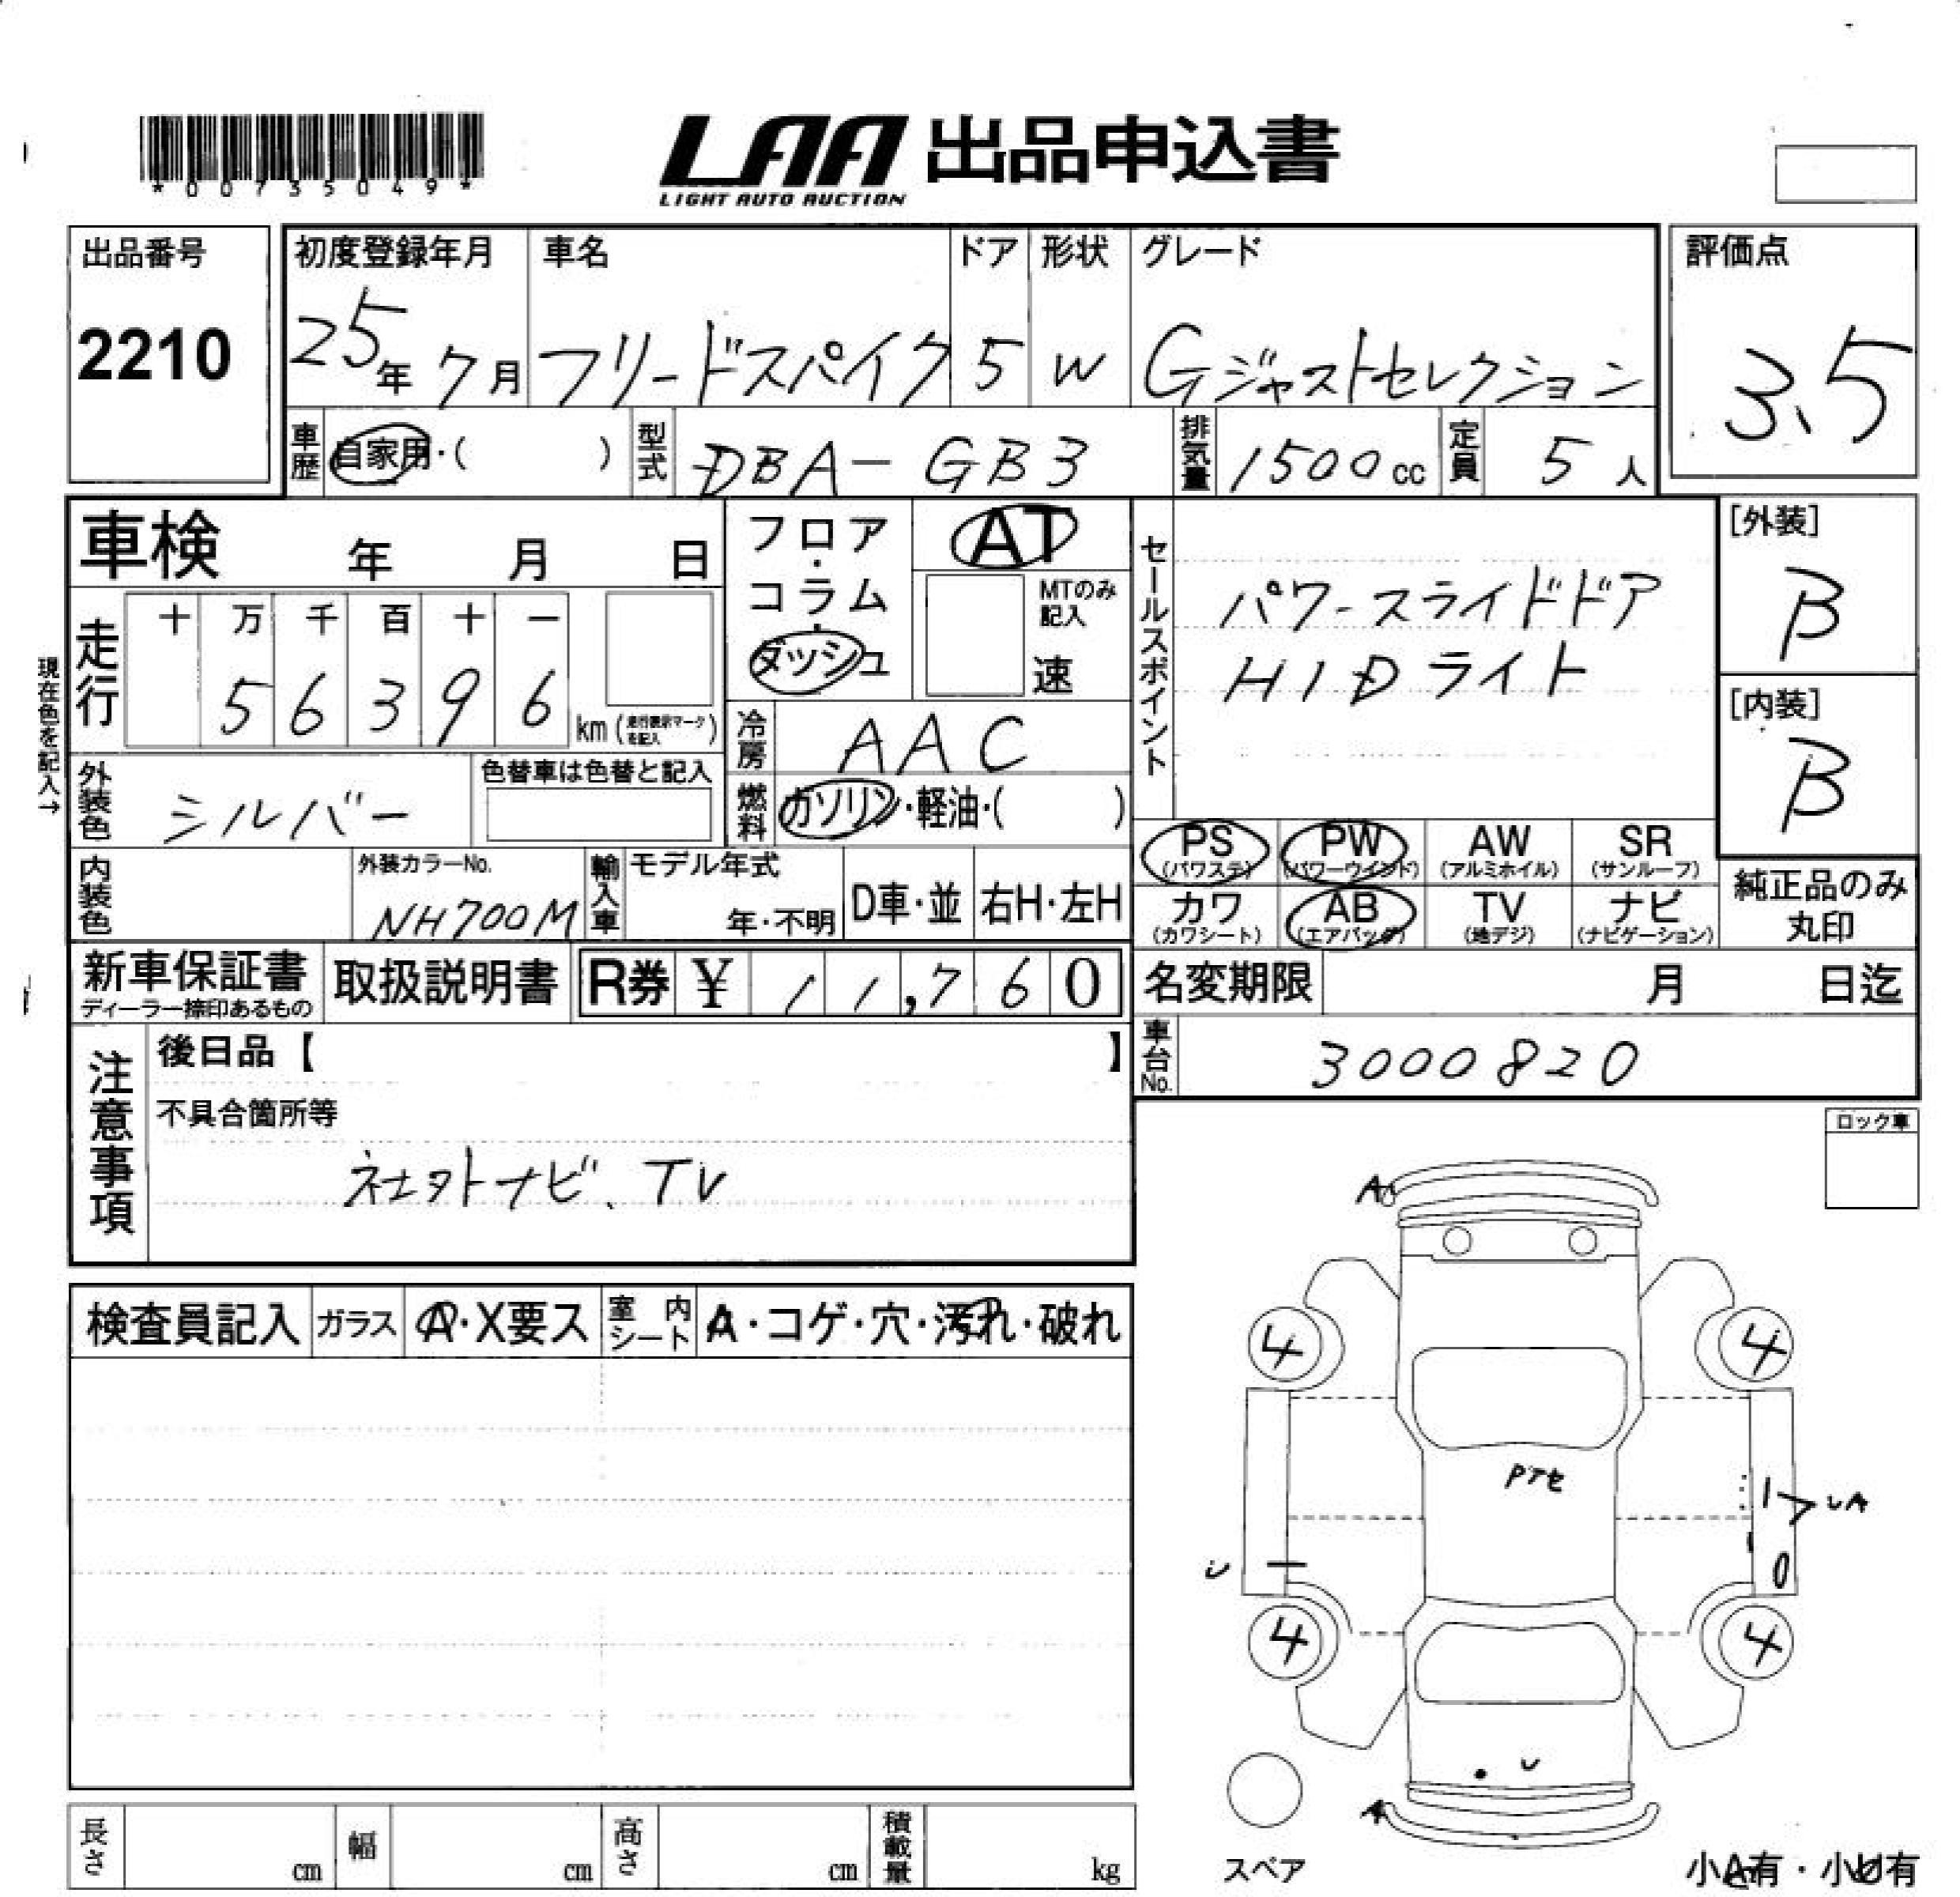 *00735049*
LAA 出品申込書
LIGHT AUTO AUCTION
出品番号
2210
初度登録年月
25年 7月
車名
フリードスパイク
ドア
5
形状
W
グレード
Gジャストセレクション
評価点
3.5
車歴 自家用・( )
型式 DBA-GB3
排気量 1500cc
定員 5人
車検 年 月 日
フロア・コラム・ダッシュ
AT
MTのみ記入
速
セールスポイント
パワースライドドア
HIDライト
[外装]
B
[内装]
B
現在色を記入→
走行 十 万 千 百 十 一
5 6 3 9 6 km (走行表示マークを記入)
冷房 AAC
燃料 ガソリン・軽油・( )
外装色 シルバー
色替車は色替と記入
PS (パワステ) PW (パワーウインド) AW (アルミホイル) SR (サンルーフ)
カワ (カワシート) AB (エアバッグ) TV (地デジ) ナビ (ナビゲーション)
純正品のみ丸印
内装色
外装カラーNo.
NH700M
輸入車 モデル年式 年・不明 D車・並 右H・左H
新車保証書
ディーラー捺印あるもの
取扱説明書
R券 ¥ 11,760
名変期限 月 日迄
車台No. 3000820
注意事項
後日品【 】
不具合箇所等
社外ナビ、TV
ロック車
検査員記入 ガラス A・X要ス 室内シート A・コゲ・穴・汚れ・破れ
A
4 4
Pアセ
UA
U
4 4
U
A
スペア
小A有・小U有
長さ cm 幅 cm 高さ cm 積載量 kg